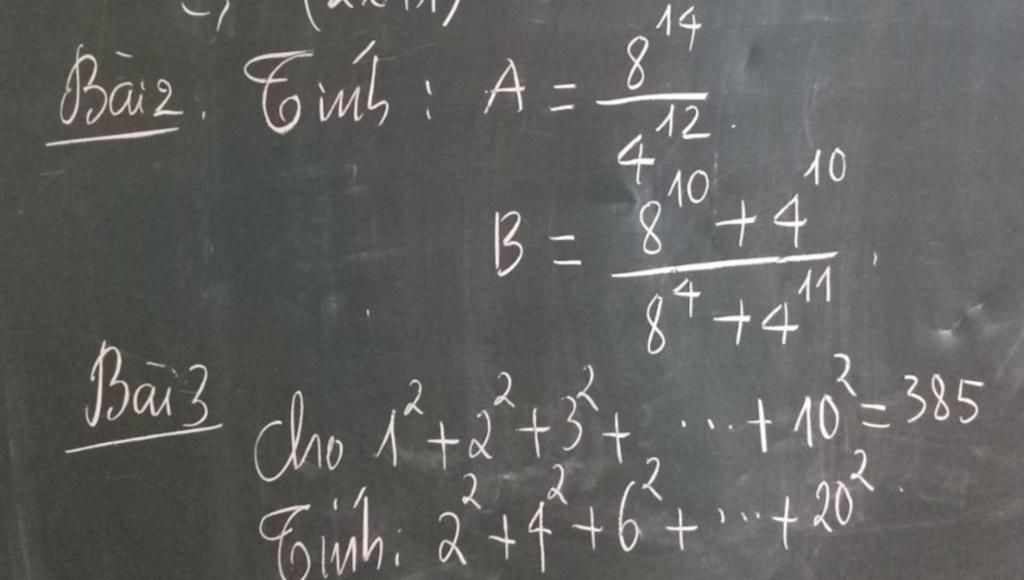 Bài 2. Tính: A = 8^14 / 4^12.
B = (8^10 + 4^10) / (8^4 + 4^11).
Bài 3
Cho 1² + 2² + 3² + ... + 10² = 385
Tính: 2² + 4² + 6² + ... + 20².